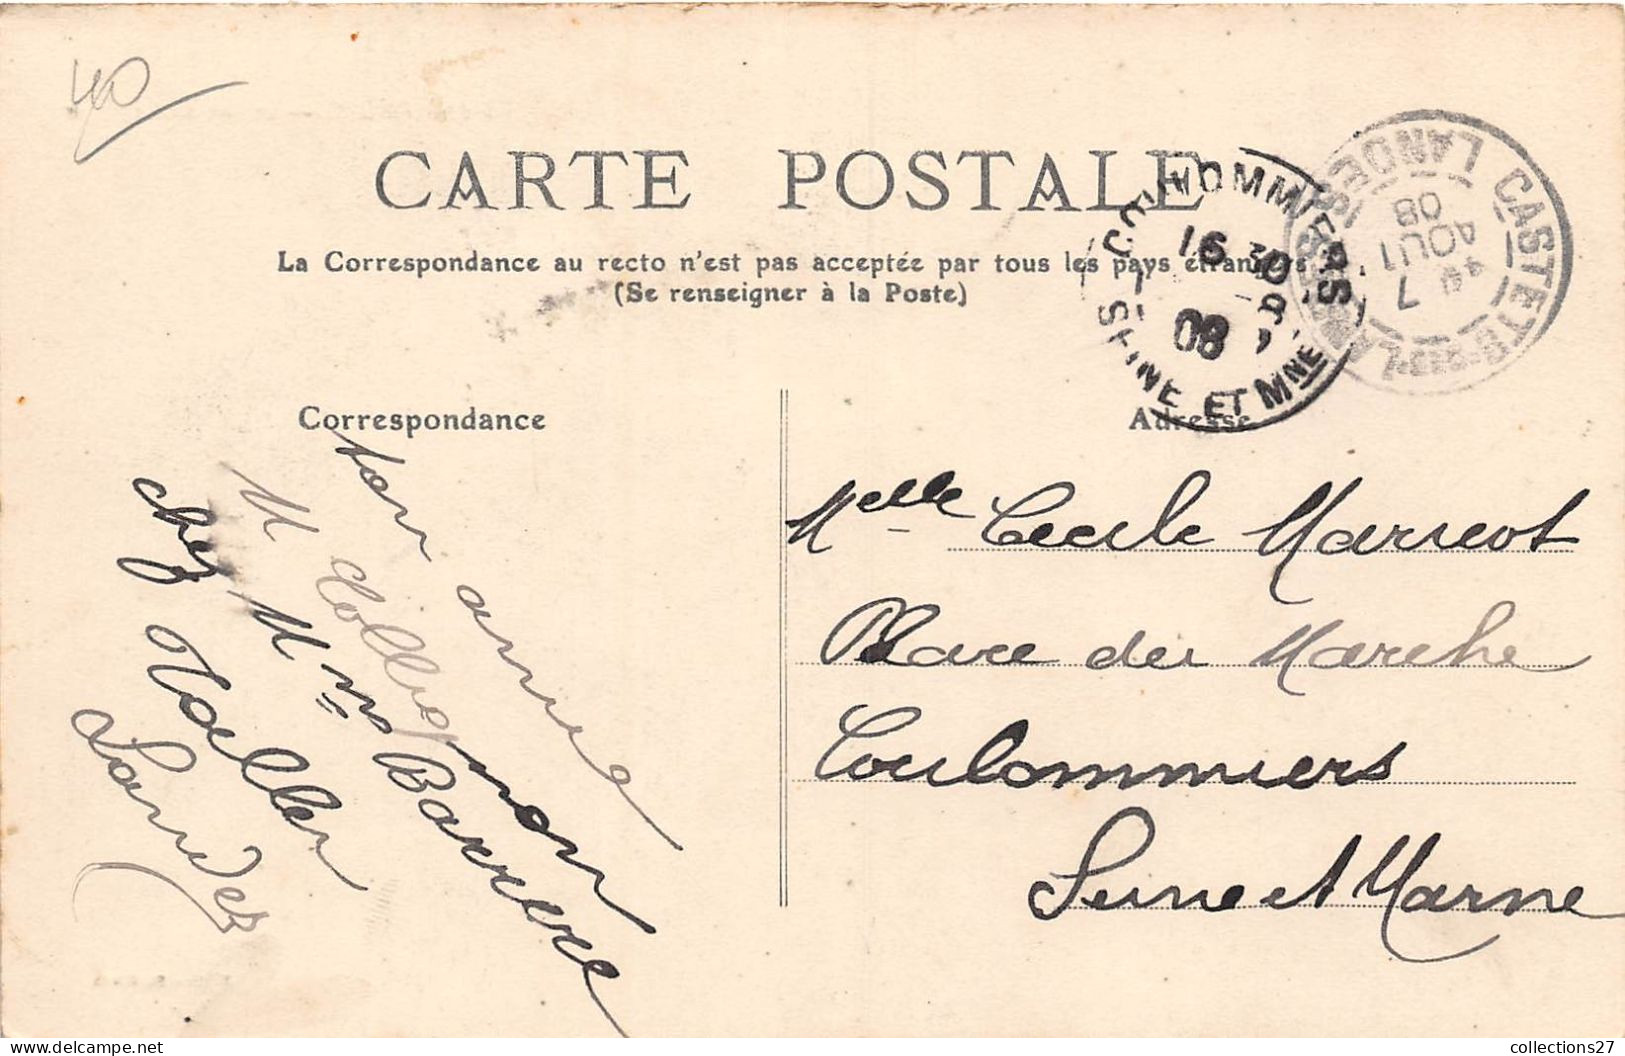 40
CARTE POSTALE
La Correspondance au recto n'est pas acceptée par tous les pays étrangers
(Se renseigner à la Poste)
COULOMMIERS
16 30
08
SEINE ET MNE
CASTETS
LANDES
7
AOUT
08
Correspondance
ton amie
M
chez Mme Barrere
Landes
Adresse
Melle Cecile Marieot
Place du Marche
Coulommiers
Seine et Marne
collections27